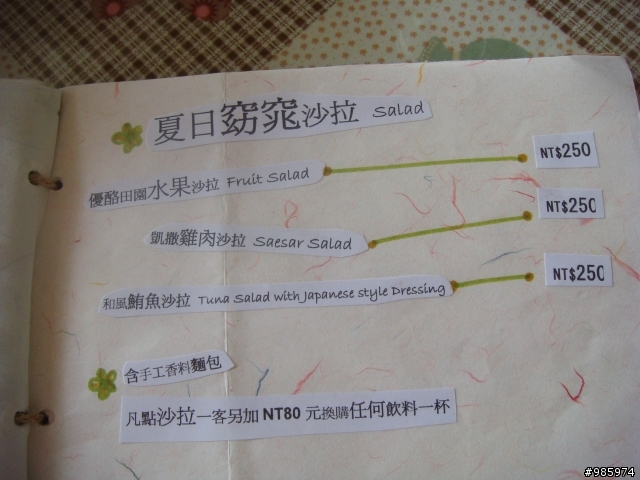 夏日窈窕沙拉 Salad
優酪田園水果沙拉 Fruit Salad NT$250
凱撒雞肉沙拉 Saesar Salad NT$250
和風鮪魚沙拉 Tuna Salad with Japanese style Dressing NT$250
含手工香料麵包
凡點沙拉一客另加 NT80 元換購任何飲料一杯
#985974